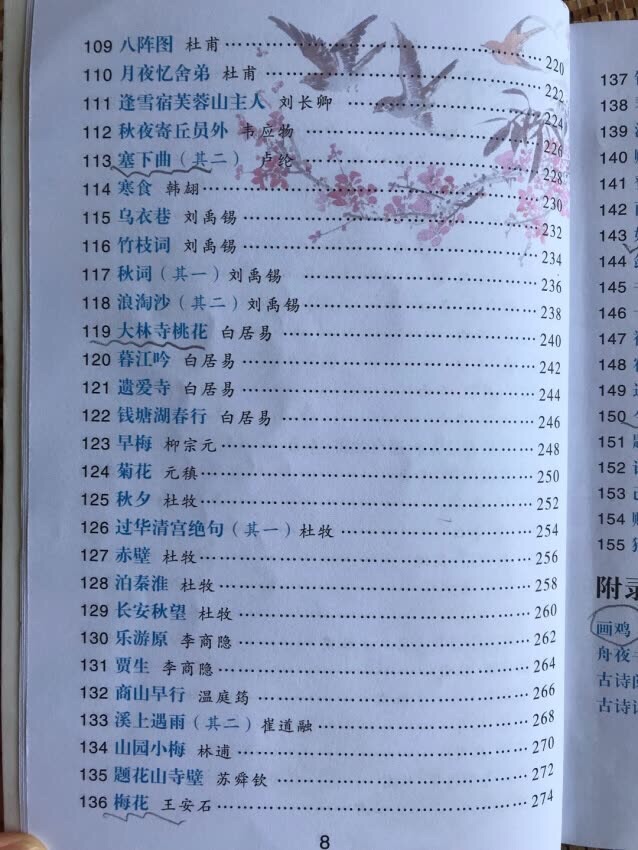 109 八阵图 杜甫 220
110 月夜忆舍弟 杜甫 222
111 逢雪宿芙蓉山主人 刘长卿 224
112 秋夜寄丘员外 韦应物 226
113 塞下曲（其二） 卢纶 228
114 寒食 韩翃 230
115 乌衣巷 刘禹锡 232
116 竹枝词 刘禹锡 234
117 秋词（其一） 刘禹锡 236
118 浪淘沙（其二） 刘禹锡 238
119 大林寺桃花 白居易 240
120 暮江吟 白居易 242
121 遗爱寺 白居易 244
122 钱塘湖春行 白居易 246
123 早梅 柳宗元 248
124 菊花 元稹 250
125 秋夕 杜牧 252
126 过华清宫绝句（其一） 杜牧 254
127 赤壁 杜牧 256
128 泊秦淮 杜牧 258
129 长安秋望 杜牧 260
130 乐游原 李商隐 262
131 贾生 李商隐 264
132 商山早行 温庭筠 266
133 溪上遇雨（其二） 崔道融 268
134 山园小梅 林逋 270
135 题花山寺壁 苏舜钦 272
136 梅花 王安石 274
8
137
138
139
140
141
142
143
144
145
146
147
148
149
150
151
152
153
154
155
附录
画鸡
舟夜
古诗
古诗